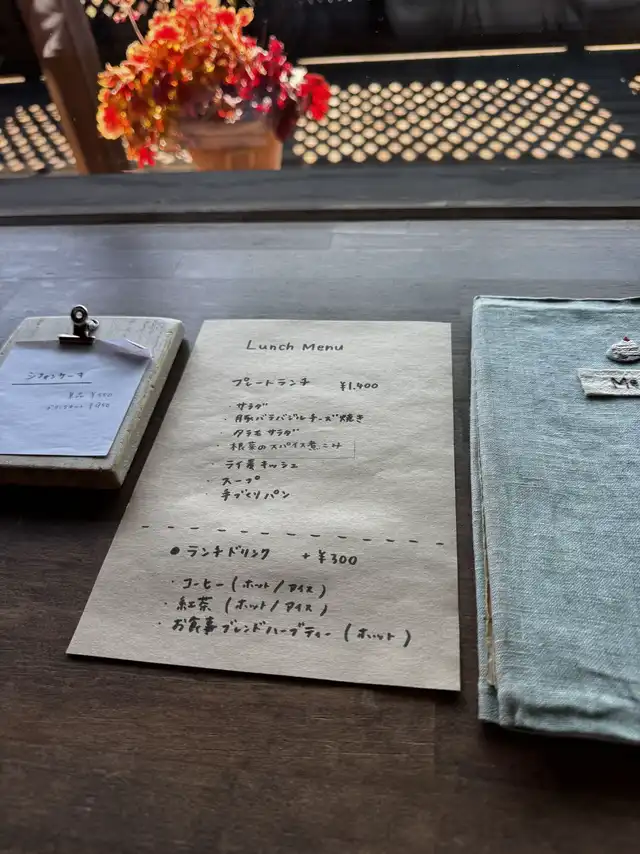 シフォンケーキ
Lunch Menu
プレートランチ ¥1,400
・サラダ
・豚バラバジルチーズ焼き
・タラモサラダ
・根菜のスパイス煮こみ
・ライ麦キッシュ
・スープ
・手づくりパン
● ランチドリンク +¥300
・コーヒー (ホット/アイス)
・紅茶 (ホット/アイス)
・お食事ブレンドハーブティー (ホット)